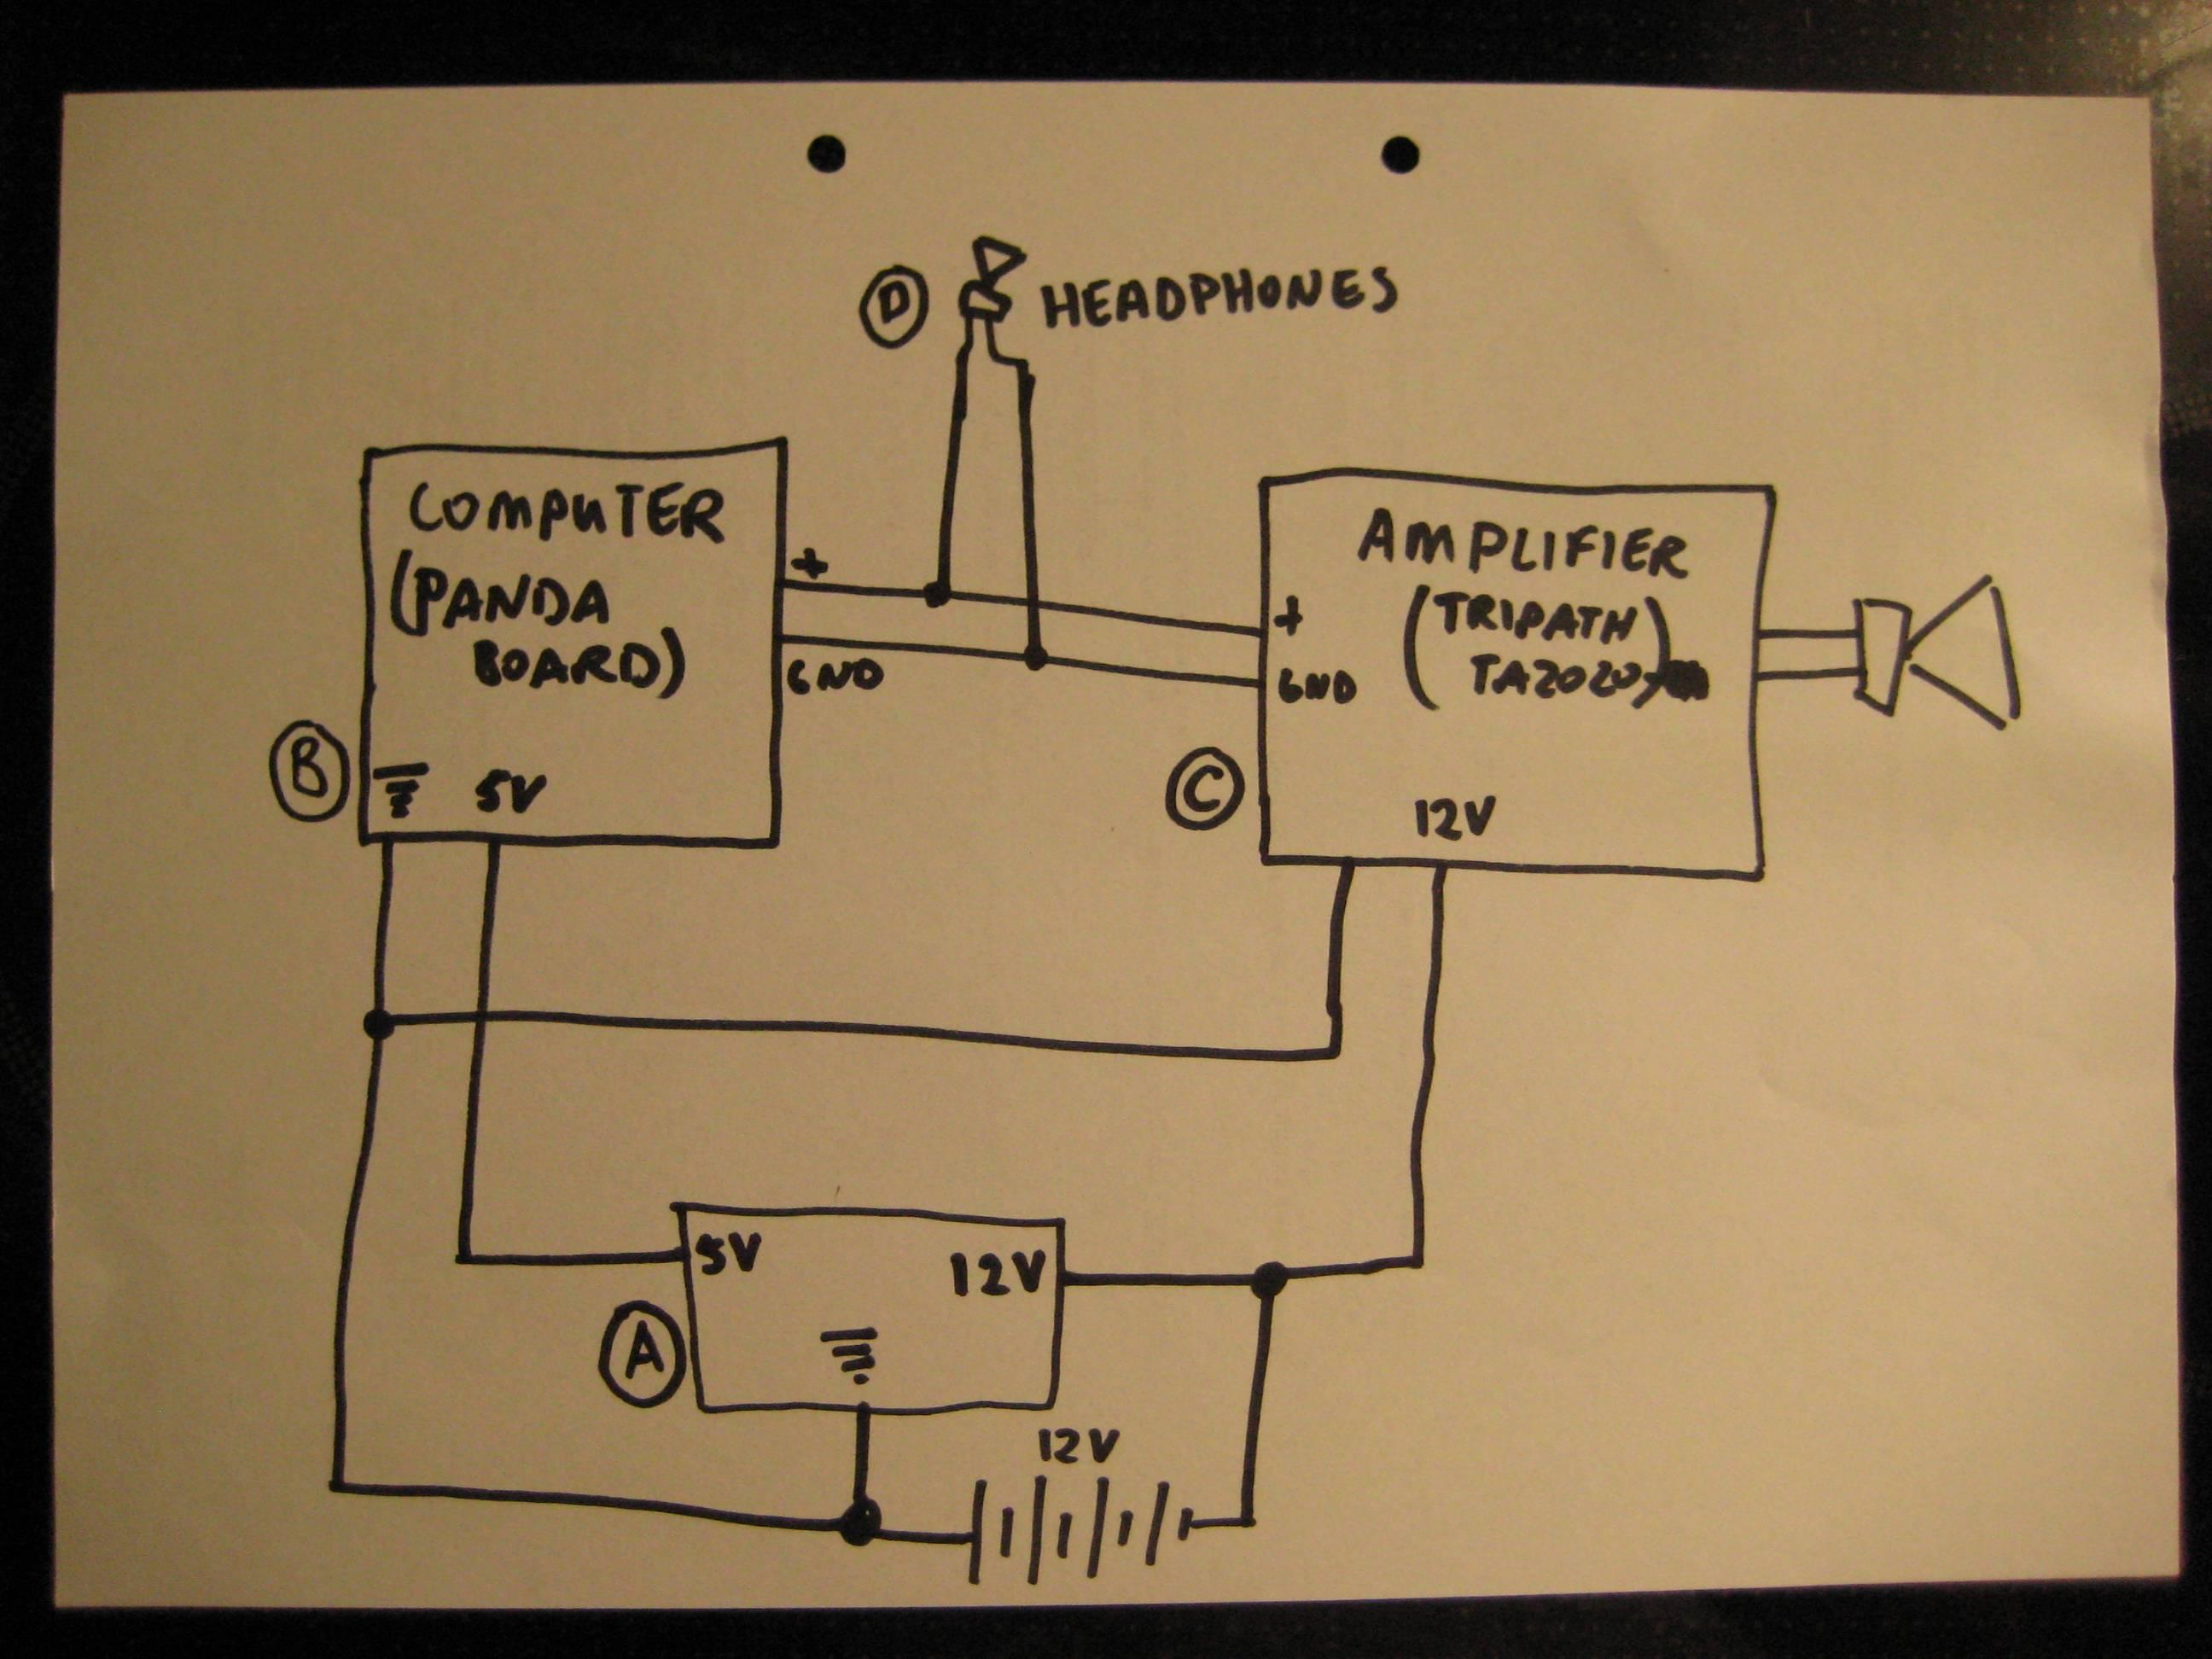 D HEADPHONES
COMPUTER
(PANDA
BOARD)
+
GND
B
5V
AMPLIFIER
(TRIPATH)
TA2020
+
GND
C
12V
5V
12V
A
12V